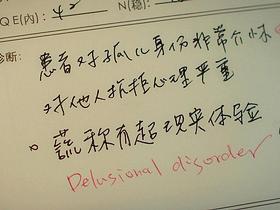 QE(内):
N(稳):
诊断:
患者对孤儿身份非常介怀
对他人抗拒心理严重
。谎称有超现实体验
Delusional disorder